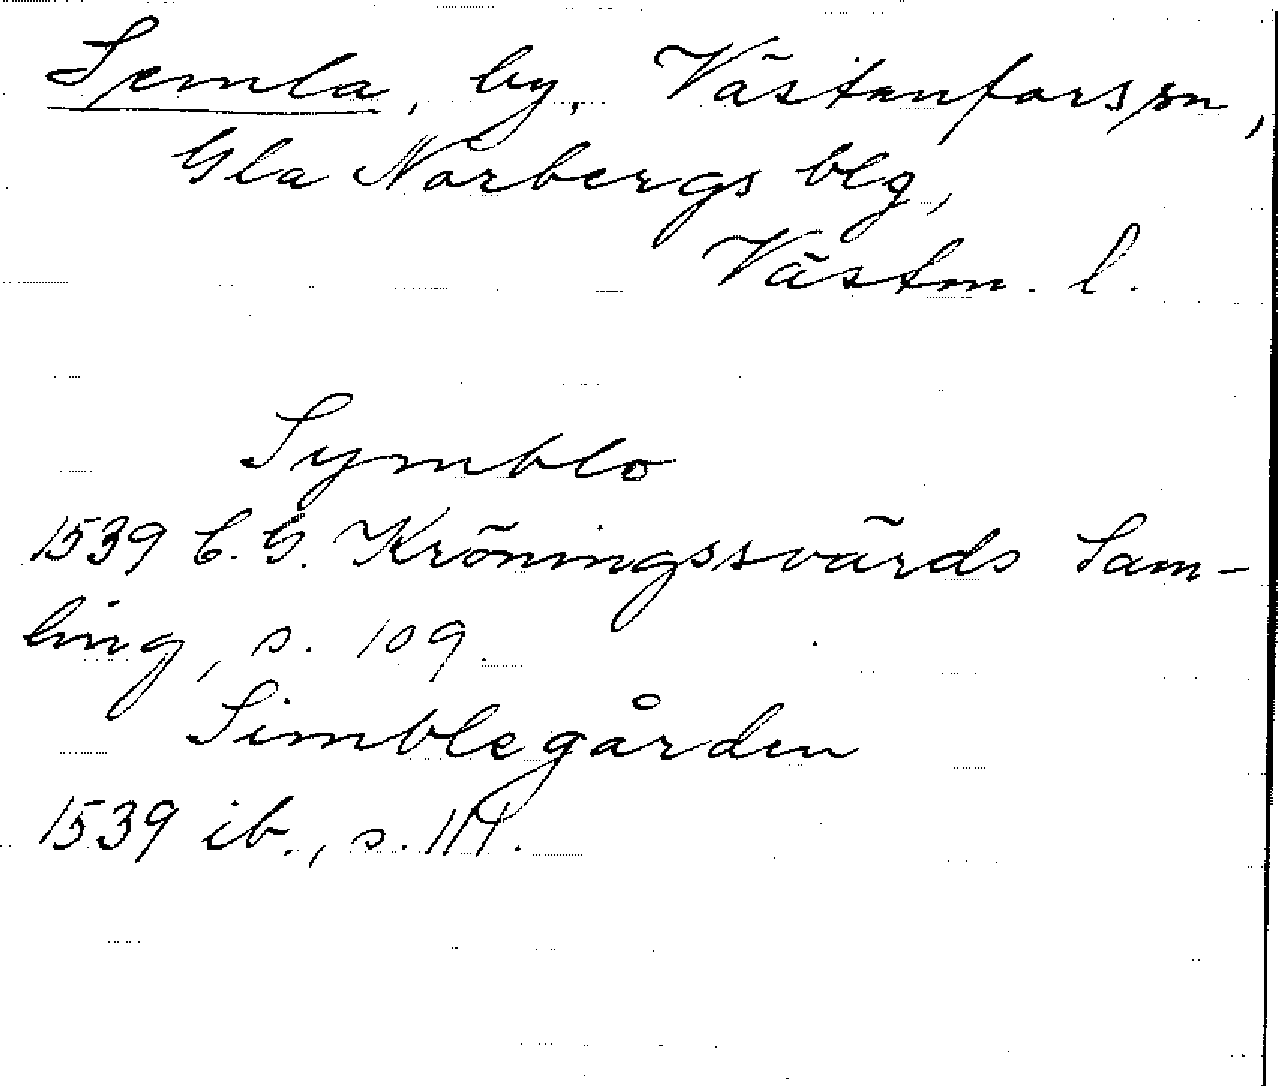 Semla, by, Västanfors sn,
Gla Norbergs blg,
Västm. l.
Symblo
1539 C. G. Kröningssvärds Sam-
ling, s. 109.
Simblegården
1539 ib., s. 114.